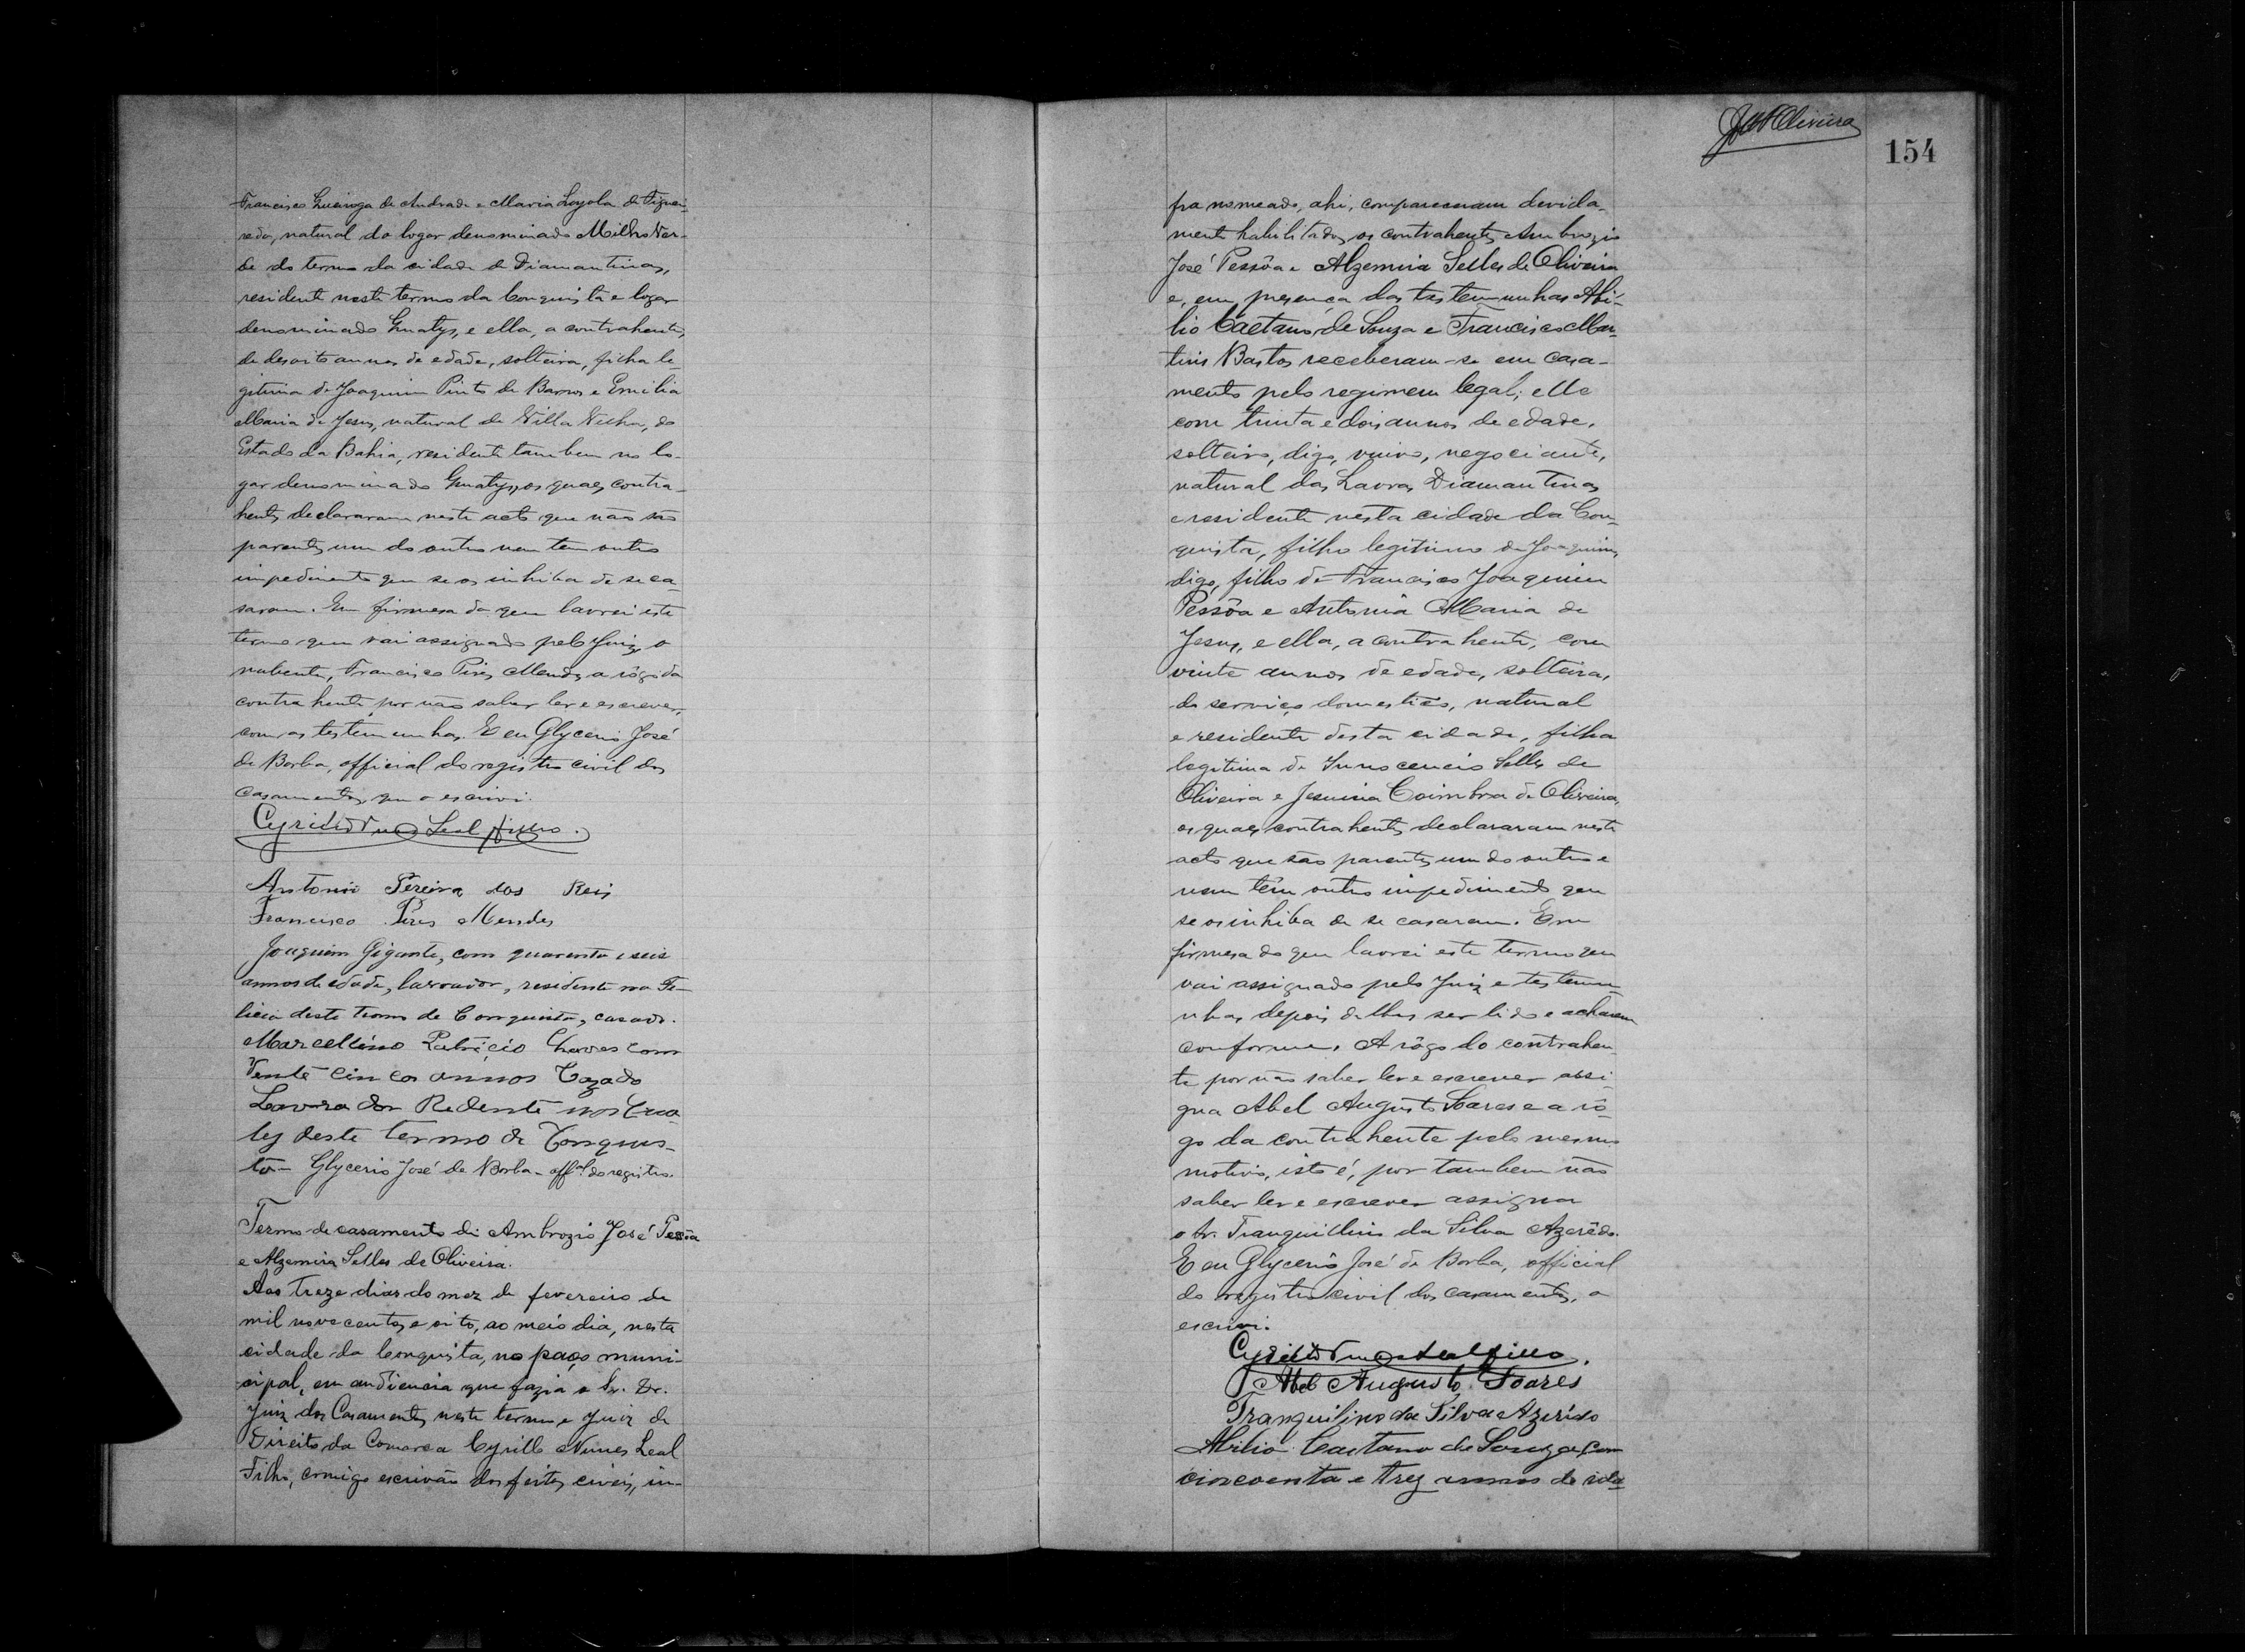 Francisco Queiroga de Andrade e Maria Loyola de Figuei-
redo, natural do logar denominado Milho Ver-
de do termo da cidade de Diamantina,
residente neste termo da Conquista e logar
denominado Gnatys, e ella, a contrahente,
de desoito annos de edade, solteira, filha le-
gitima de Joaquim Pinto de Barros e Emilia
Maria de Jesus, natural de Villa Velha, do
Estado da Bahia, residente tambem no lo-
gar denominado Gnatys, os quaes contra-
hentes declararam neste acto que não são
parentes um do outro nem tem outro
impedimento que se os inhiba de se ca-
sarem. Em firmesa do que lavrei este
termo que vai assignado pelo Juiz, o
nubente, Francisco Pires Mendes a rôgo da
contrahente por não saber ler e escrever,
com as testemunhas. E eu Glycerio José
de Borba, official do registro civil dos
casamentos, que o escrivi.
Cyrillo Nunes Leal Filho.
Antonio Pereira dos Reis
Francisco Pires Mendes
Joaquim Gigante, com quarenta e seis
annos de edade, lavrador, residente na Fe-
licia deste termo de Conquista, casado.
Marcellino Patricio Chaves com
Vente cinco annos Cazado
Lavrador Redente nos Gua-
tes deste termo de Conquis-
ta— Glycerio José de Borba - offal. do registro.
Termo de casamento de Ambrozio José Pessôa
e Alzemira Selles de Oliveira.
Aos treze dias do mez de fevereiro de
mil novecentos e oito, ao meio dia, nesta
cidade da Conquista, no paço muni-
cipal, em audiencia que fazia o Sr. Dr.
Juiz dos Casamentos neste termo e Juiz de
Direito da Comarca Cyrillo Nunes Leal
Filho, comigo escrivão dos feitos civeis, in-
JMOliveira
154
fra nomeado, ahi, compareceram devida-
mente habilitados os contrahentes Ambrozio
José Pessôa e Alzemira Selles de Oliveira
e, em presença das testemunhas Abi-
lio Caetano de Souza e Francisco Mar-
tins Bastos receberam-se em casa-
mento pelo regimem legal; elle
com trinta e dois annos de edade,
solteiro, digo, viuvo, negociante,
natural das Lavras Diamantinas
e residente nesta cidade da Con-
quista, filho legitimo de Joaquim,
digo, filho de Francisco Joaquim
Pessôa e Antonia Maria de
Jesus, e ella, a contrahente, com
vinte annos de edade, solteira,
do serviço domestico, natural
e residente desta cidade, filha
legitima de Innocencio Selles de
Oliveira e Jesuina Coimbra de Oliveira,
os quaes contrahentes declararam neste
acto que são parentes um do outro e
nem têm outro impedimento que
se os inhiba de se casarem. Em
firmesa do que lavrei este termo que
vai assignado pelo Juiz e testemu-
nhas, depois de lhes ser lido e acharem
conforme. A rôgo do contrahen-
te por não saber ler e escrever assi-
gna Abel Augusto Soares e a rô-
go da contrahente pelo mesmo
motivo, isto é, por tambem não
saber ler e escrever assigna
o Sr. Tranquillino da Silva Azerêdo.
E eu Glycerio José de Borba, official
do registro civil dos casamentos, o
escrivi.
Cyrillo Nunes Leal Filho.
Abel Augusto Soares
Tranquilino da Silva Azerêdo
Abilio Caetano de Souza, com
cincoenta e trez annos de ida-